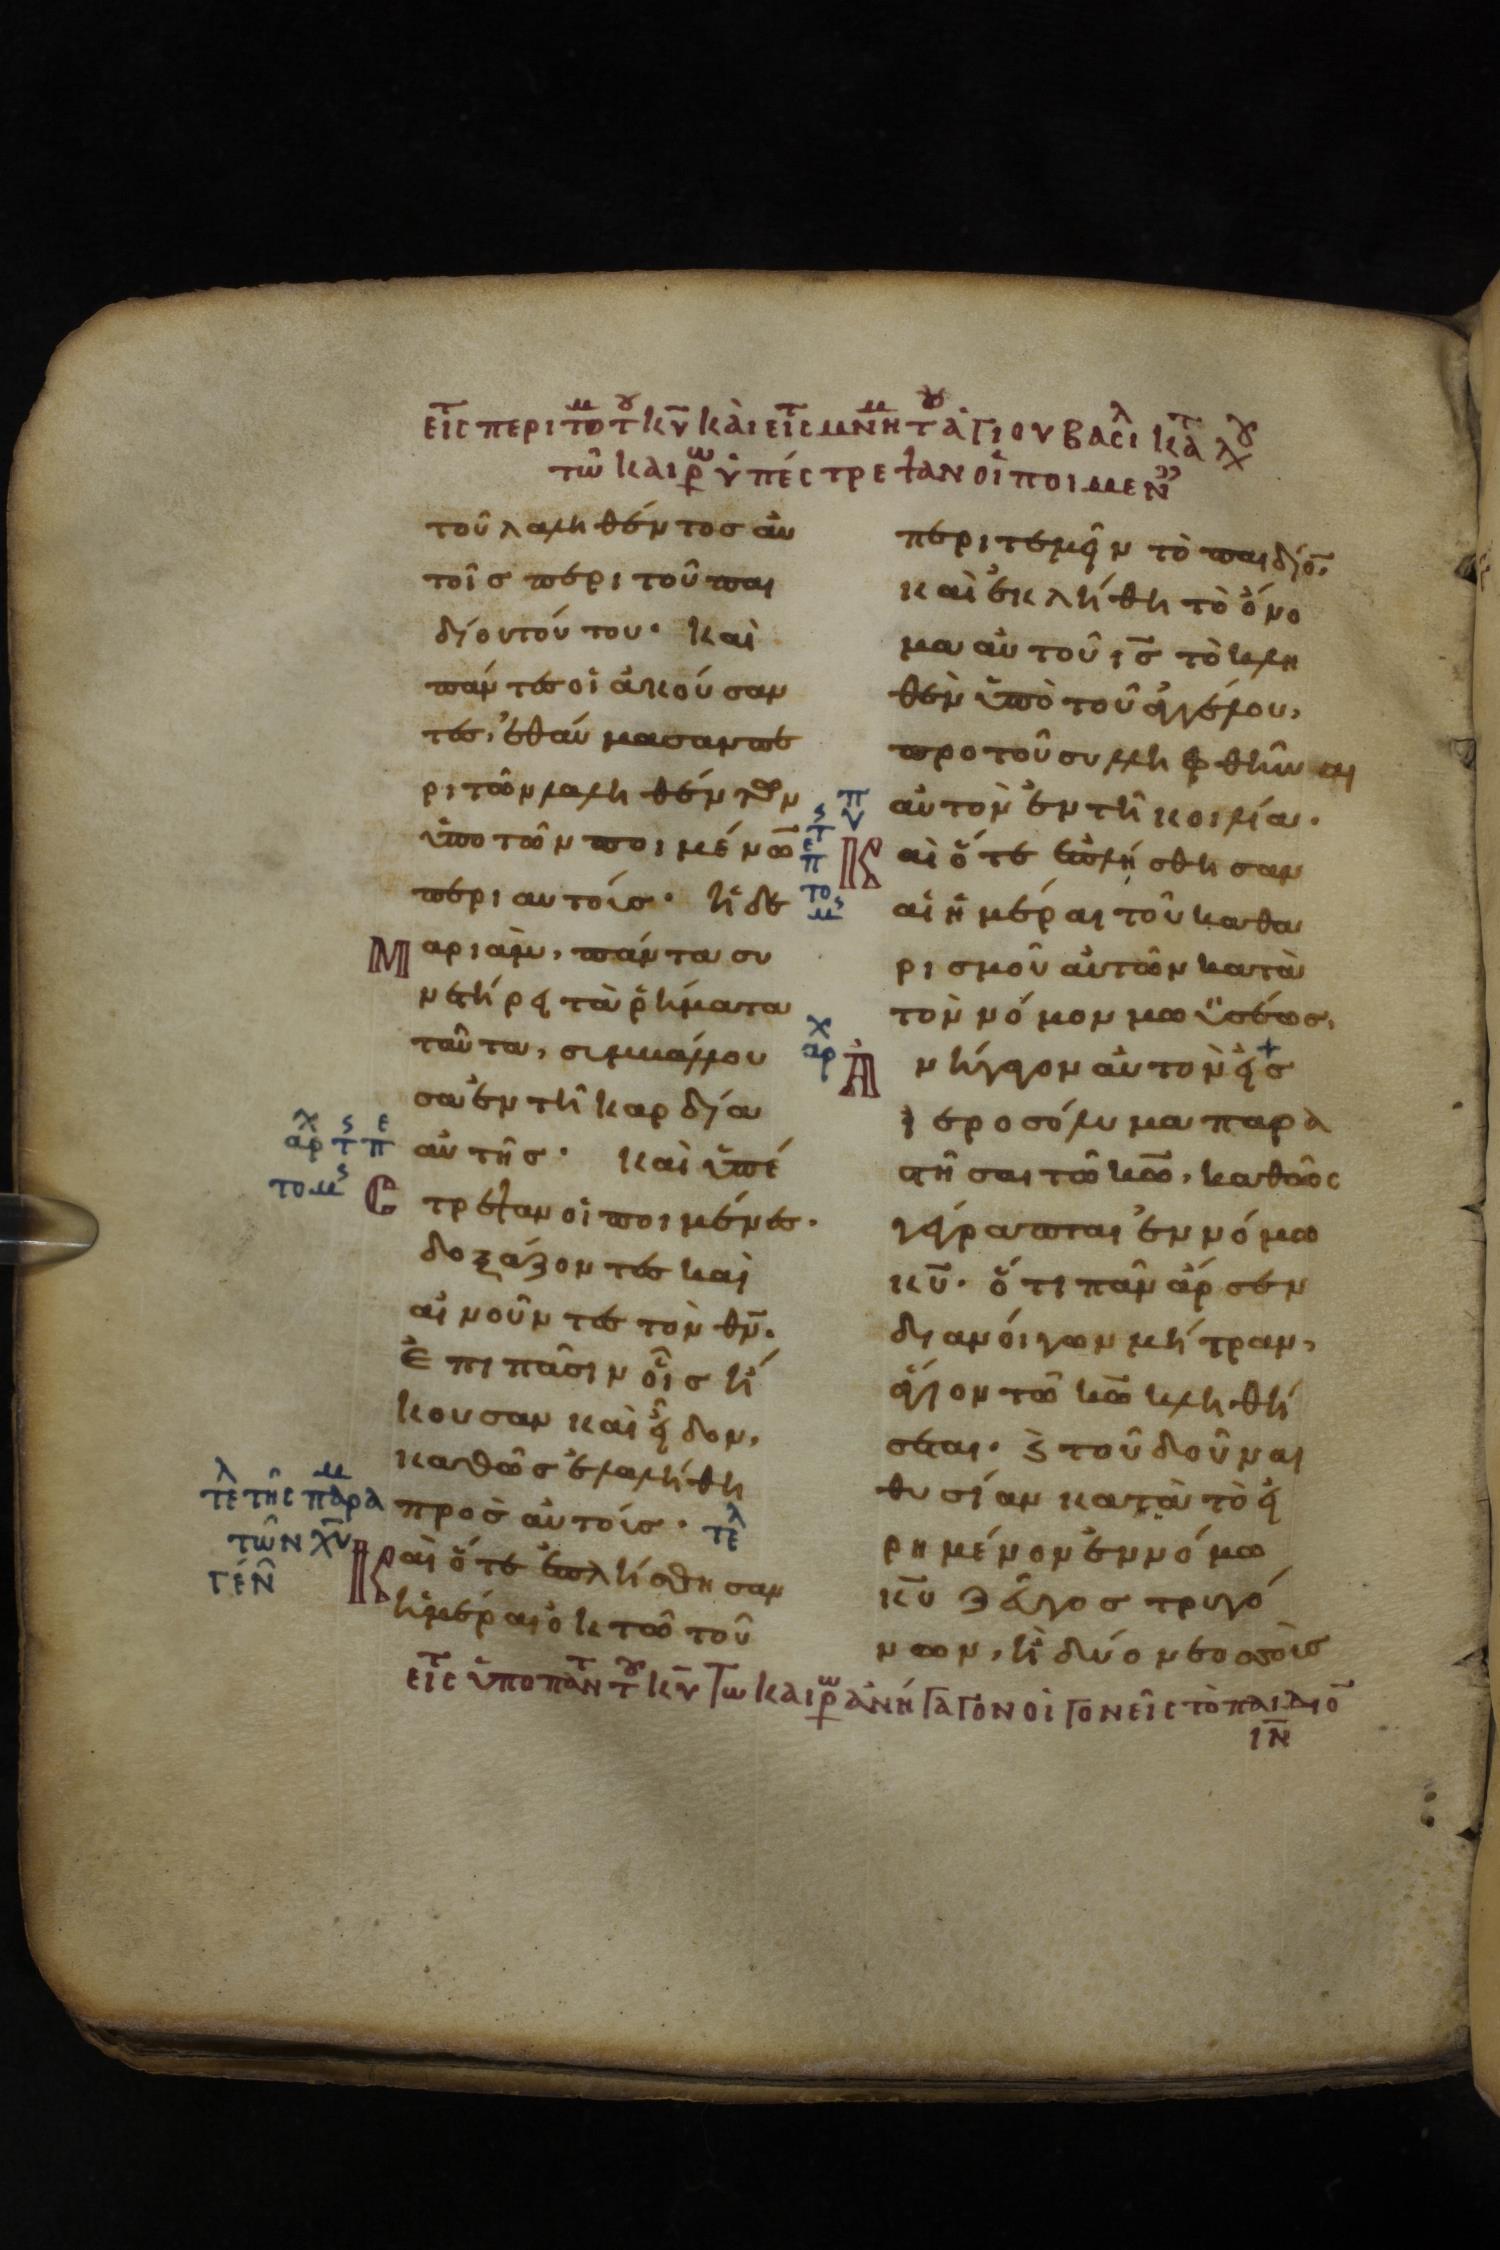 εἰς περιτομ τ κυ καὶ εἰς μνημ τ ἁγίου βασιλ κατ λχ
τῶ καιρῶ ὑπέστρεψαν οἱ ποιμεν
τοῦ λαληθέντοσ αὐ
τοῖσ περι τοῦ παι
δίου τούτου· καὶ
πάντεσ οἱ ἀκούσαν
τεσ, ἐθαύμασαν πε
ρι τῶν λαληθέντων
ὑπο τῶν ποιμένω
περι αυτοίσ· ἡ δε
Μαριὰμ, πάντα συ
νετήρει τὰ ῥήματα
ταῦτα, συμβάλλου
σα ἐν τῆ καρδία
αὐτῆσ· καὶ ὑπέ
Στρεψαν οἱ ποιμένεσ·
δοξάζοντεσ καὶ
αἰνοῦντεσ τὸν θν·
Ἐπι πᾶσιν οἷσ ἤ
κουσαν καὶ εἶδον,
καθῶσ ἐλαλήθη
προσ αὐτοίσ· τελ
Καὶ ὅτε ἐπλήσθησαν
ἡμέραι ὀκτῶ τοῦ
περιτεμεῖν τὸ παιδίο,
καὶ ἐκλήθη τὸ ὄνο
μα αὐτοῦ ισ τὸ κλη
θὲν ὑπὸ τοῦ ἀγγέλου,
προ τοῦ συλληφθῆναι
αὐτὸν ἐν τῆ κοιλία·
Καὶ ὅτε ἐπλήσθησαν
αἱ ἡμέραι τοῦ καθα
ρισμοῦ αὐτῶν κατὰ
τὸν νόμον μωϋσέωσ,
Ἀνήγαγον αὐτὸν εἰσ
ιεροσόλυμα παρα
στῆσαι τῶ κω, καθῶς
γέγραπται ἐν νόμω
κυ· ὅτι πᾶν ἄρσεν
διανόιγων μήτραν,
ἅγιον τῶ κω κληθή
σεται· ϗ τοῦ δοῦναι
θυσίαν κατὰ τὸ εἰ
ρημένον ἐν νόμω
κυ ζεῦγοσ τρυγό
νων, ἢ δύο νεοσσοὺσ
εἰς ὑποπαντ τ κυ Τῶ καιρῶ ἀνήγαγον οἱ γονεῖς τὸ παιδίο
ιν
αρχ τς πε
τομς
τελ τῆς παραμ
τῶν χυ
γέν
πυ
στ
επ
το
μς
αρχ